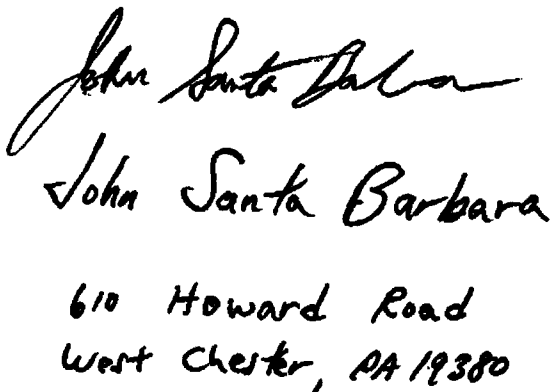 John Santa Barbara
John Santa Barbara
610 Howard Road
West Chester, PA 19380